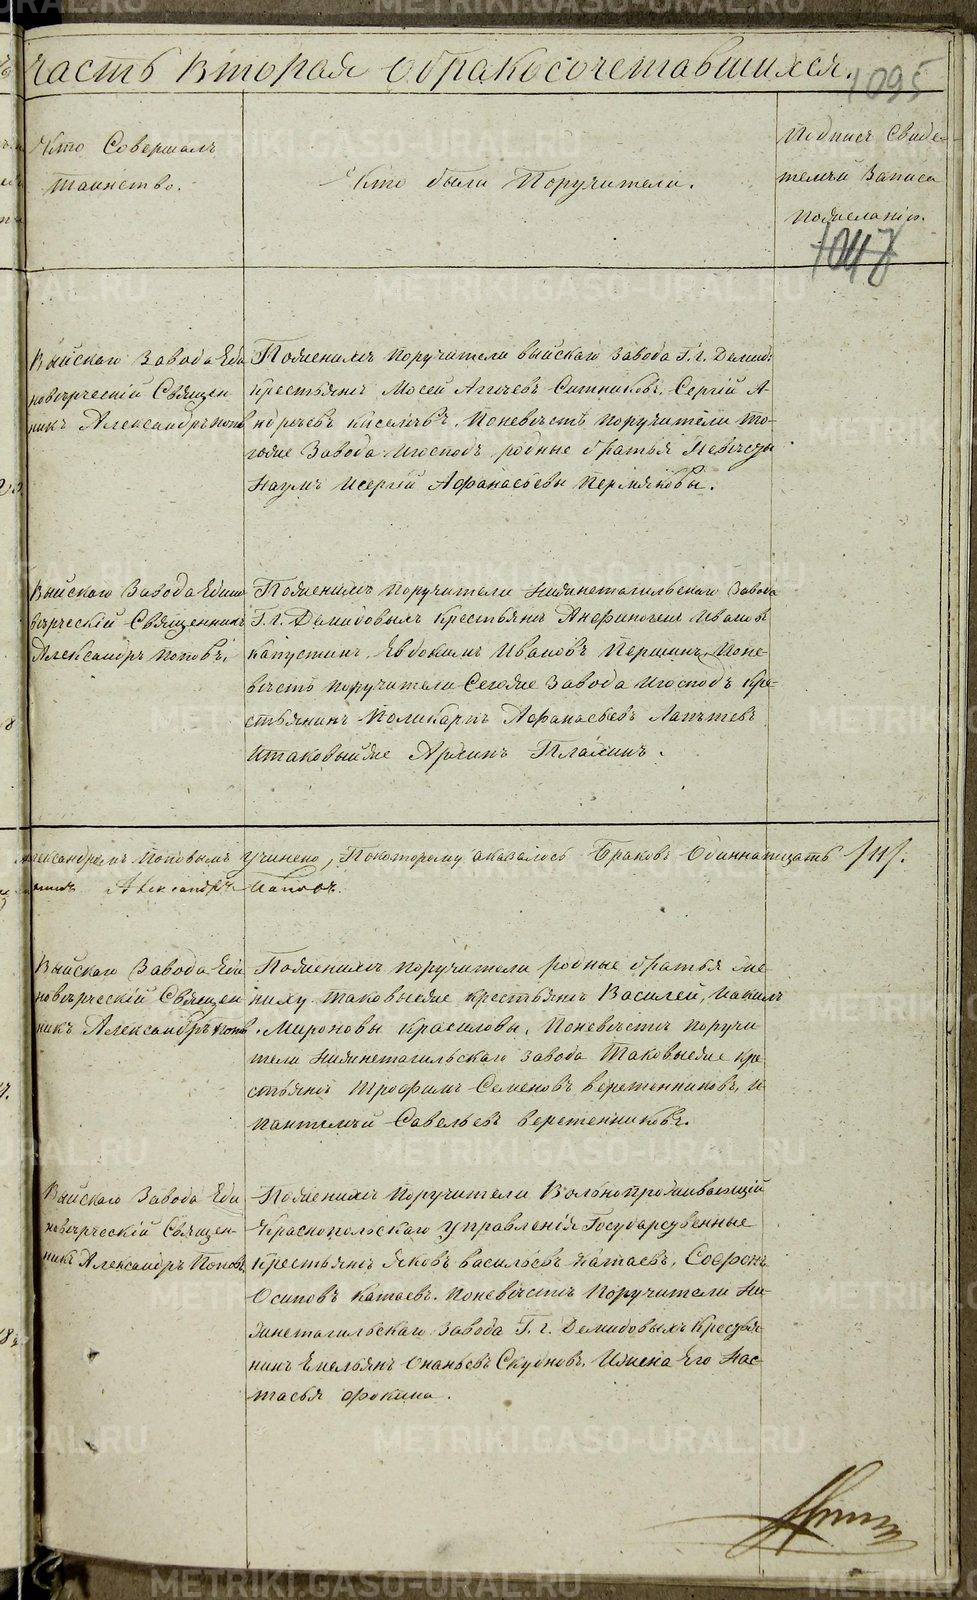 часть вторая обракосочетавшихся.
1095
Кто Совершалъ
таинство.
Кто были Поручители.
Подпись Свиде-
телей Записи
пожеланію.
1047
Выйскаго Завода Еди
новѣрческій Священ
никъ Александръ Попов
Поженихѣ поручители выйскаго завода Г. г. Демид:
крестьяне Мосей Агѣевъ Ситниковъ, Сергѣй А-
ндреевъ Киселевъ. Поневѣстѣ поручители то-
гоже Завода игосподъ родные братья Невѣсты
Наумъ исергѣй Афанасьевы Пермяковы.
Выйскаго Завода Едино
вѣрческій Священникъ
Александръ Поповъ.
Поженихѣ поручители Нижнетагильскаго Завода
Г. г. Демидовыхъ крестьяне Ивановъ
капустинъ, Евдокимъ Ивановъ Першинъ, Поне-
вѣстѣ поручители Сегоже Завода игосподъ кре-
стьянинъ Поликарпъ Афанасьевъ Лаптевъ
итаковыйже Архипъ Плахинъ.
лександромъ Поповымъ учинено, Покоторому оказалось Браковъ Одиннатцать /11/.
Александръ Поповъ.
Выйскаго Завода Еди
новѣрческій Священ
никъ Александръ Попов
Поженихѣ поручители родные братья же-
ниху таковыеже крестьяне Василей, иакимъ
Мироновы красиловы, Поневѣстѣ поручи
тели нижнетагильскаго завода Таковыеже кре-
стьяне Трофимъ Семеновъ веретенниковъ, и
пантелѣй Савельевъ веретенниковъ.
Выйскаго Завода Еди
новѣрческій Священ-
никъ Александръ Поповъ.
Поженихѣ Поручители Вольнопроживающій
Краснопольскаго управленія Государсвенные
крестьяне Яковъ васильевъ катаевъ, Софронъ
Осиповъ катаевъ. Поневѣстѣ Поручители Ни-
жнетагильскаго завода Г. г. Демидовыхъ Крестья-
нинъ Емельянъ Ананьевъ Скубновъ, Ижена Его Нас-
тасья Фокина.